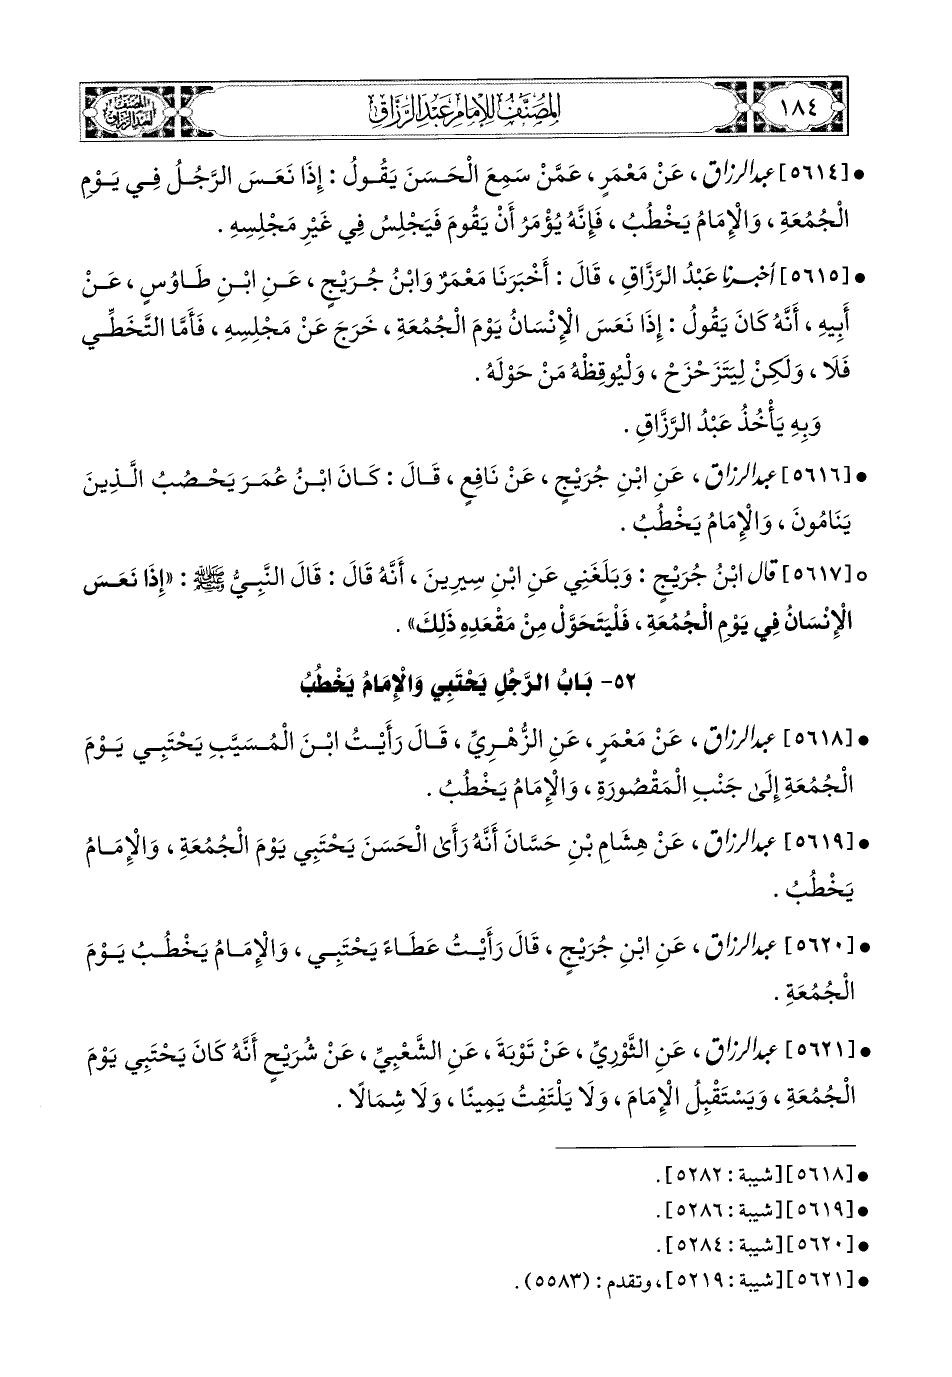 ١٨٤
المصنف للإمام عبد الرزاق
المصنف
لعبد الرزاق
• [٥٦١٤] عبد الرزاق، عَنْ مَعْمَرٍ، عَمَّنْ سَمِعَ الْحَسَنَ يَقُولُ : إِذَا نَعَسَ الرَّجُلُ فِي يَوْمِ
الْجُمُعَةِ، وَالْإِمَامُ يَخْطُبُ، فَإِنَّهُ يُؤْمَرُ أَنْ يَقُومَ فَيَجْلِسُ فِي غَيْرِ مَجْلِسِهِ .
• [٥٦١٥] أخبرنا عَبْدُ الرَّزَّاقِ، قَالَ : أَخْبَرَنَا مَعْمَرٌ وَابْنُ جُرَيْجٍ، عَنِ ابْنِ طَاوُسٍ، عَنْ
أَبِيهِ، أَنَّهُ كَانَ يَقُولُ : إِذَا نَعَسَ الْإِنْسَانُ يَوْمَ الْجُمُعَةِ، خَرَجَ عَنْ مَجْلِسِهِ، فَأَمَّا التَّخَطِّي
فَلَا، وَلَكِنْ لِيَتَزَحْزَحْ، وَلْيُوقِظْهُ مَنْ حَوْلَهُ .
وَبِهِ يَأْخُذُ عَبْدُ الرَّزَّاقِ .
• [٥٦١٦] عبد الرزاق، عَنِ ابْنِ جُرَيْجٍ، عَنْ نَافِعٍ، قَالَ : كَانَ ابْنُ عُمَرَ يَحْصُبُ الَّذِينَ
يَنَامُونَ، وَالْإِمَامُ يَخْطُبُ .
○ [٥٦١٧] قال ابْنُ جُرَيْجٍ : وَبَلَغَنِي عَنِ ابْنِ سِيرِينَ، أَنَّهُ قَالَ : قَالَ النَّبِيُّ ﷺ : «إِذَا نَعَسَ
الْإِنْسَانُ فِي يَوْمِ الْجُمُعَةِ، فَلْيَتَحَوَّلْ مِنْ مَقْعَدِهِ ذَلِكَ» .
٥٢- بَابُ الرَّجُلِ يَحْتَبِي وَالْإِمَامُ يَخْطُبُ
• [٥٦١٨] عبد الرزاق، عَنْ مَعْمَرٍ، عَنِ الزُّهْرِيِّ، قَالَ رَأَيْتُ ابْنَ الْمُسَيَّبِ يَحْتَبِي يَوْمَ
الْجُمُعَةِ إِلَى جَنْبِ الْمَقْصُورَةِ، وَالْإِمَامُ يَخْطُبُ .
• [٥٦١٩] عبد الرزاق، عَنْ هِشَامِ بْنِ حَسَّانَ أَنَّهُ رَأَى الْحَسَنَ يَحْتَبِي يَوْمَ الْجُمُعَةِ، وَالْإِمَامُ
يَخْطُبُ .
• [٥٦٢٠] عبد الرزاق، عَنِ ابْنِ جُرَيْجٍ، قَالَ رَأَيْتُ عَطَاءً يَحْتَبِي، وَالْإِمَامُ يَخْطُبُ يَوْمَ
الْجُمُعَةِ .
• [٥٦٢١] عبد الرزاق، عَنِ الثَّوْرِيِّ، عَنْ تَوْبَةَ، عَنِ الشَّعْبِيِّ، عَنْ شُرَيْحٍ أَنَّهُ كَانَ يَحْتَبِي يَوْمَ
الْجُمُعَةِ، وَيَسْتَقْبِلُ الْإِمَامَ، وَلَا يَلْتَفِتُ يَمِينًا، وَلَا شِمَالًا .
• [٥٦١٨] [شيبة : ٥٢٨٢] .
• [٥٦١٩] [شيبة : ٥٢٨٦] .
• [٥٦٢٠] [شيبة : ٥٢٨٤] .
• [٥٦٢١] [شيبة : ٥٢١٩]، وتقدم : (٥٥٨٣) .